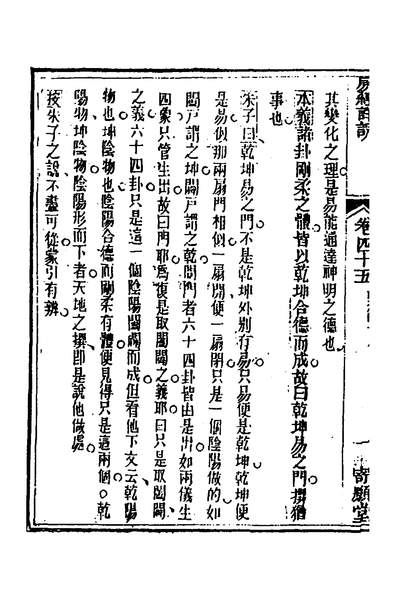 周經詳說
卷四十五
寄願堂
其變化之理是易能通達神明之德也
本義諸卦剛柔之體皆以乾坤合德而成故曰乾坤易之門撰猶
事也
朱子曰乾坤易之門不是乾坤外別有易只易便是乾坤乾坤便
是易似那兩扇門相似一扇開便一扇閉只是一個陰陽做的如
闔戶謂之坤闢戶謂之乾問門者六十四卦皆由是出如兩儀生
四象只管生出故曰門耶爲復是取闔闢之義耶曰只是取闔闢
之義六十四卦只是這一個陰陽闔闢而成但看他下文云乾陽
物也坤陰物也陰陽合德而剛柔有體便見得只是這兩個○乾
陽物坤陰物陰陽形而下者天地之撰即是說他做處
按朱子之說不盡可從蒙引有辨